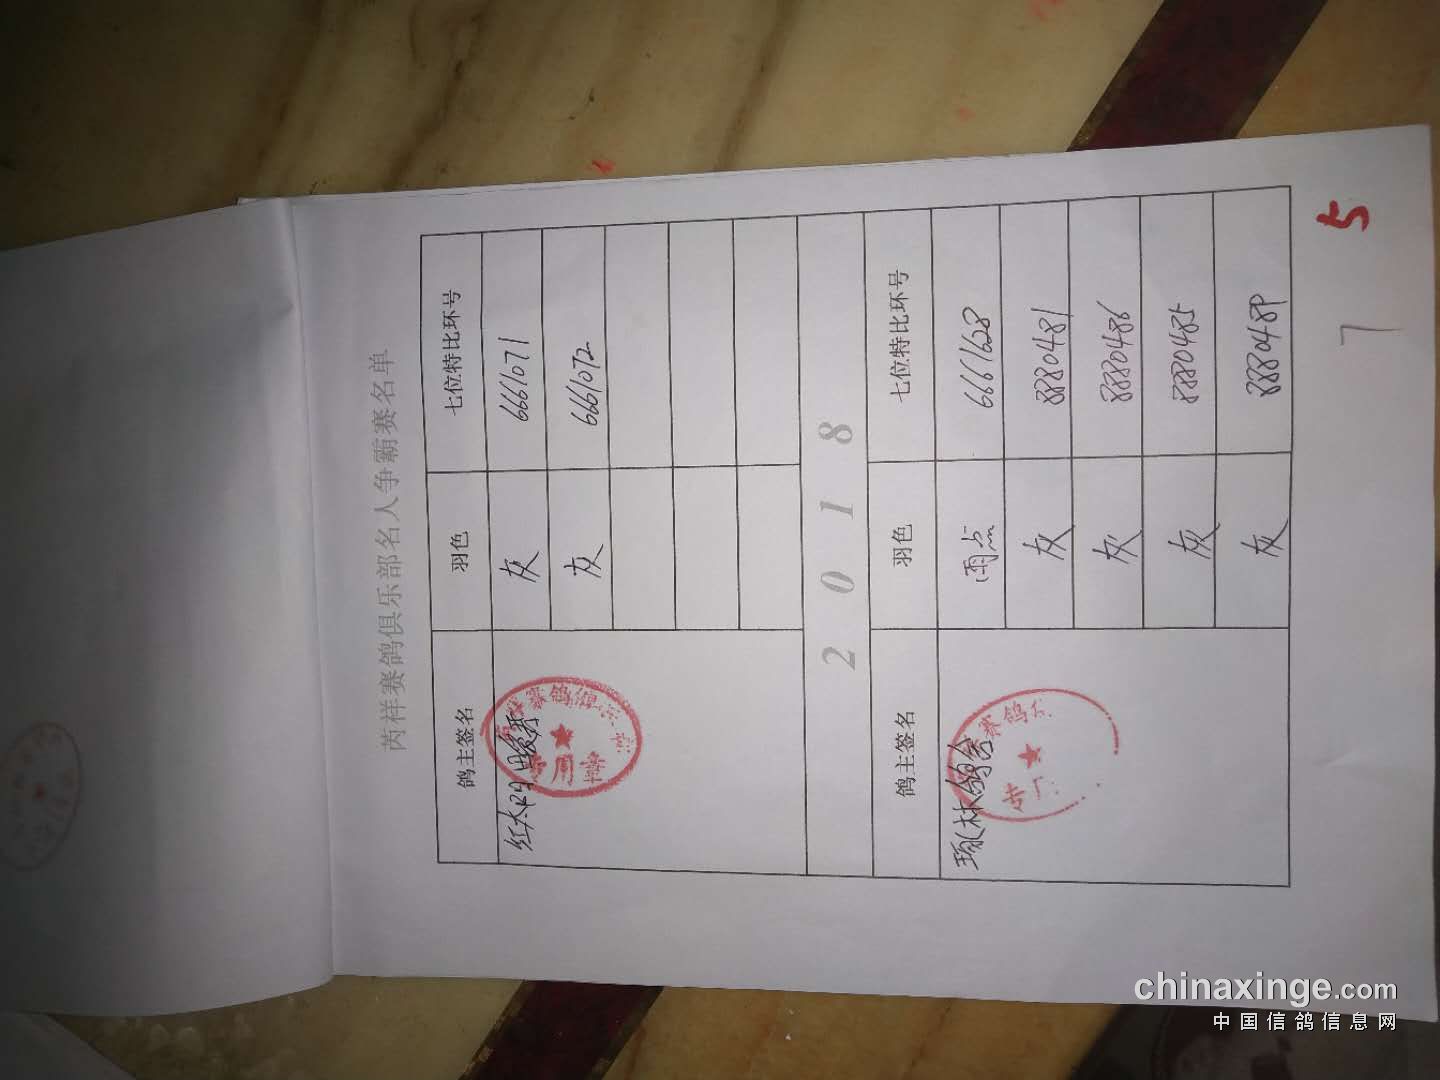 芮祥赛鸽俱乐部名人争霸赛名单
鸽主签名 羽色 七位特比环号
红太阳 灰 6661071
灰 6661072
2018
鸽主签名 羽色 七位特比环号
林鸽舍 雨点 6661628
灰 8880481
灰 8880486
灰 8880485
灰 888048P
5
7
赛鸽俱乐部
专用章
赛鸽
专
chinaxinge.com
中国信鸽信息网